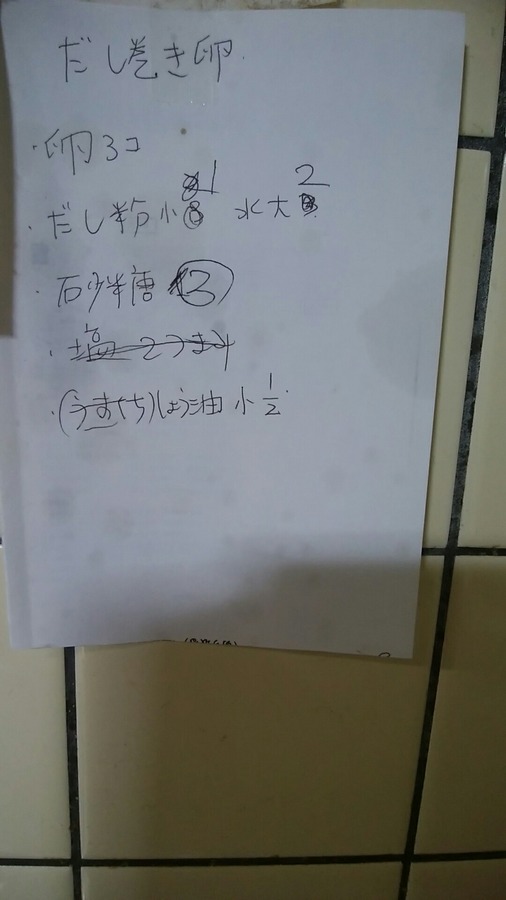 だし巻き卵
・卵3コ
・だし粉小1 水大2
・砂糖3
・塩2つまみ
・(うすくち)しょう油 小1/2